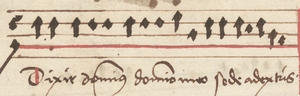 Dixit dominus domino meo sede a dextris.